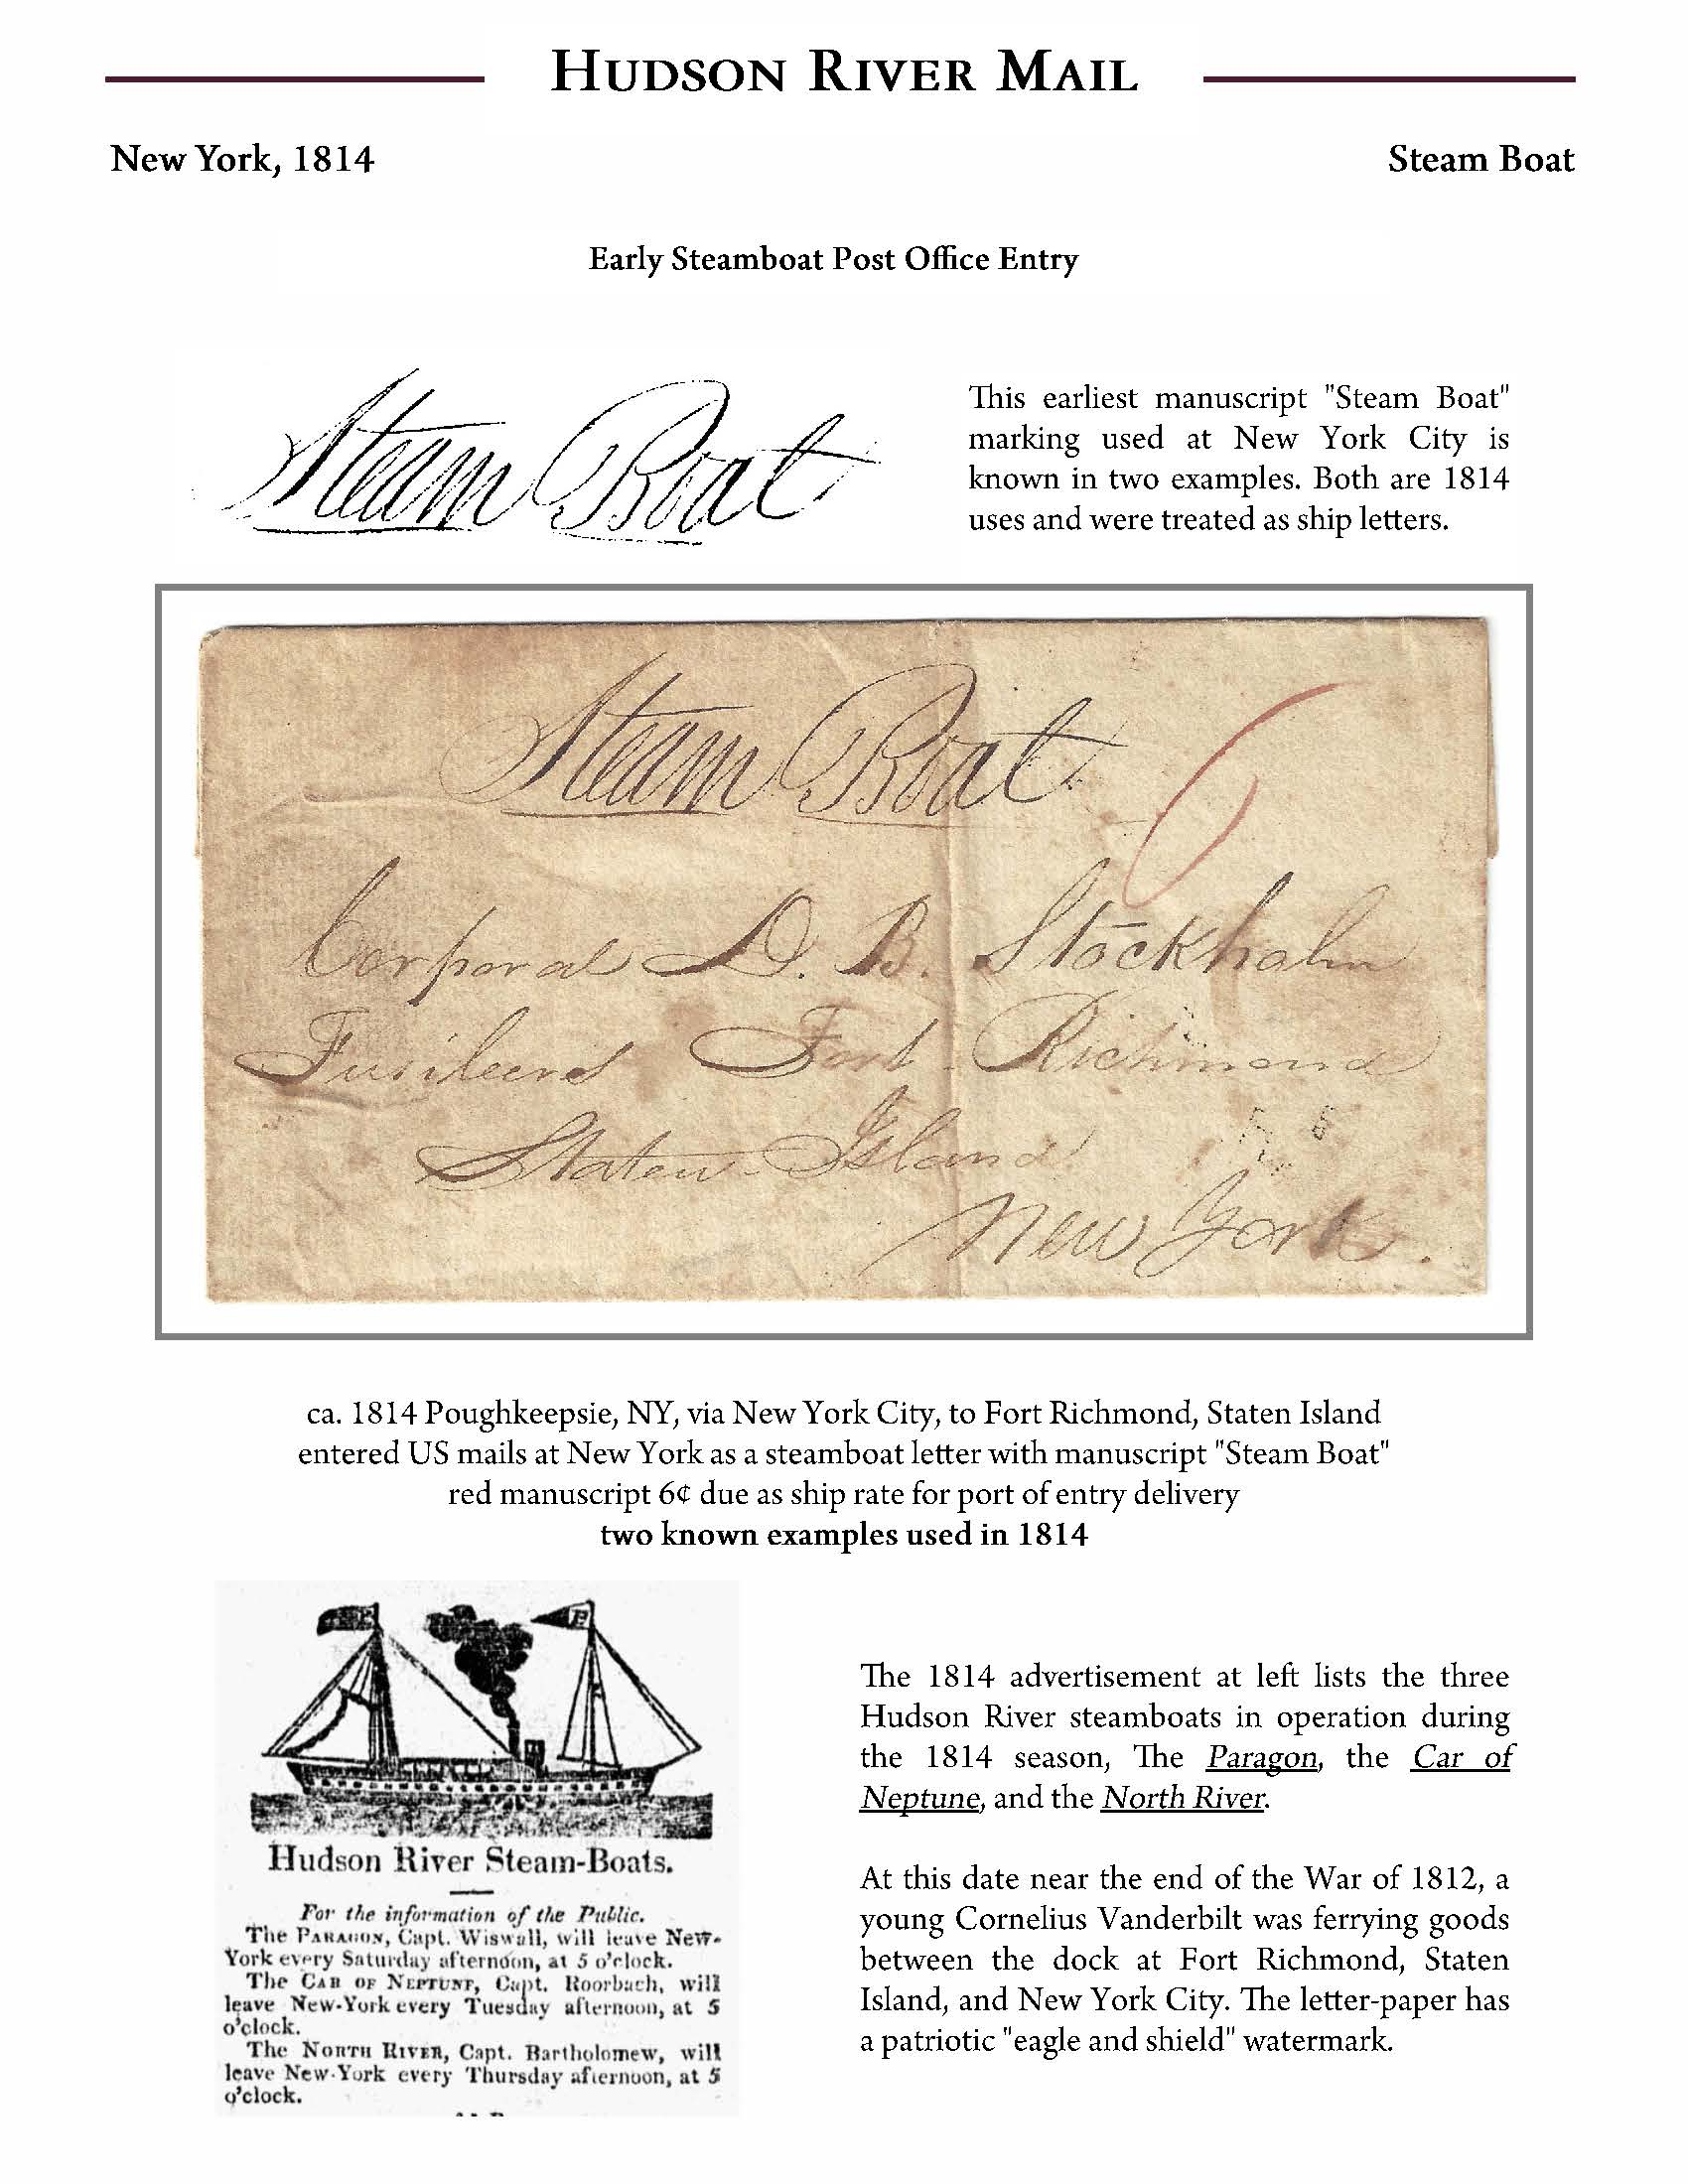 HUDSON RIVER MAIL
New York, 1814
Steam Boat
Early Steamboat Post Office Entry
Steam Boat
This earliest manuscript "Steam Boat"
marking used at New York City is
known in two examples. Both are 1814
uses and were treated as ship letters.
Steam Boat
6
Corporal D. B. Stockholm
Fusileers Fort Richmond
Staten Island
New York.
ca. 1814 Poughkeepsie, NY, via New York City, to Fort Richmond, Staten Island
entered US mails at New York as a steamboat letter with manuscript "Steam Boat"
red manuscript 6¢ due as ship rate for port of entry delivery
two known examples used in 1814
P
Hudson River Steam-Boats.
For the information of the Public.
The PARAGON, Capt. Wiswall, will leave New-
York every Saturday afternoon, at 5 o'clock.
The CAR OF NEPTUNE, Capt. Roorbach, will
leave New-York every Tuesday afternoon, at 5
o'clock.
The NORTH RIVER, Capt. Bartholomew, will
leave New-York every Thursday afternoon, at 5
o'clock.
The 1814 advertisement at left lists the three
Hudson River steamboats in operation during
the 1814 season, The Paragon, the Car of
Neptune, and the North River.
At this date near the end of the War of 1812, a
young Cornelius Vanderbilt was ferrying goods
between the dock at Fort Richmond, Staten
Island, and New York City. The letter-paper has
a patriotic "eagle and shield" watermark.